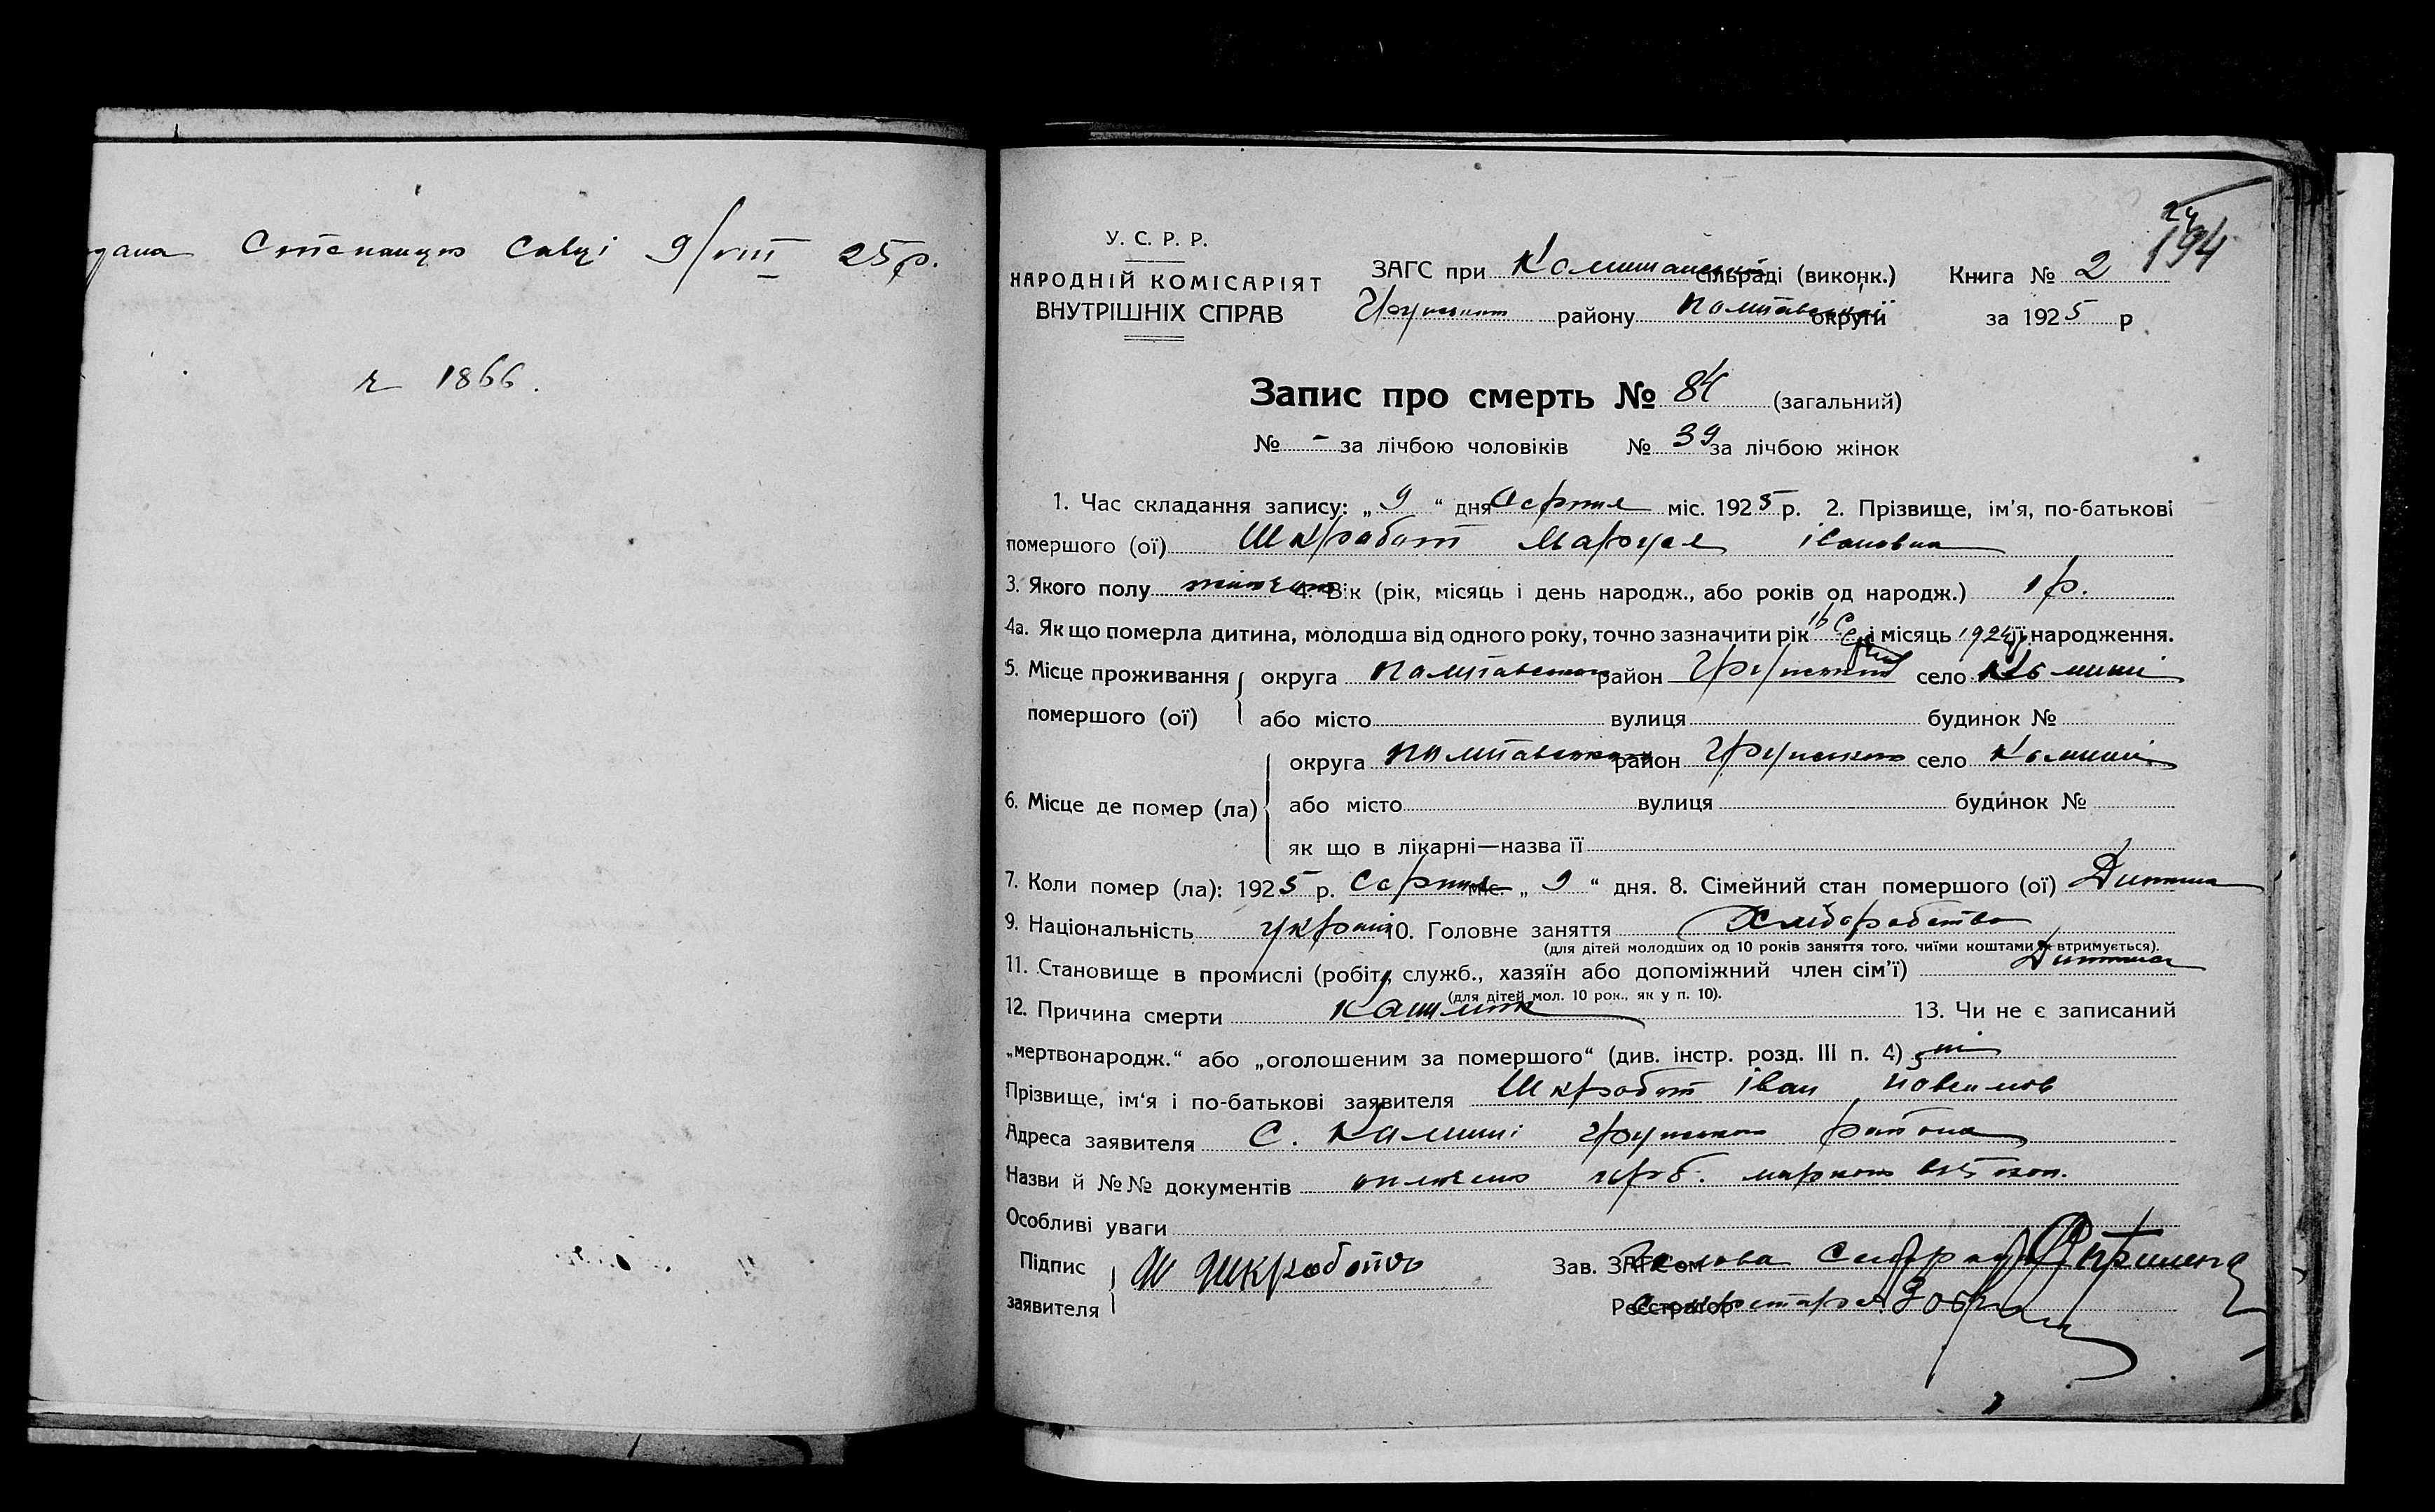 Степанцю Савці 9/VIII 25 р.
1866.
194
У. С. Р. Р.
НАРОДНІЙ КОМІСАРІЯТ
ВНУТРІШНІХ СПРАВ
ЗАГС при Комишанській сільраді (виконк.) Книга № 2
Грунського району Полтавської округи за 1925 р
Запис про смерть № 84 (загальний)
№ - за лічбою чоловіків № 39 за лічбою жінок
1. Час складання запису: „ 9 “ дня Серпня міс. 1925 р. 2. Прізвище, ім'я, по-батькові
помершого (ої) Шкработ Маруся івановна
3. Якого полу 4. Вік (рік, місяць і день народж., або років од народж.) 1 р.
4а. Як що померла дитина, молодша від одного року, точно зазначити рік і місяць 1924 її народження.
5. Місце проживання округа Полтавська район Грунський село Комиші
помершого (ої) або місто вулиця будинок №
округа Полтавська район Грунського село Комиші
6. Місце де помер (ла) або місто вулиця будинок №
як що в лікарні—назва її
7. Коли помер (ла): 1925 р. Серпня міс. „ 9 “ дня. 8. Сімейний стан помершого (ої) Дитина
9. Національність україн 10. Головне заняття Хліборобство
(для дітей молодших од 10 років заняття того, чиїми коштами втримується).
11. Становище в промислі (робіт., служб., хазяїн або допоміжний член сім'ї) Дитина
(для дітей мол. 10 рок., як у п. 10).
12. Причина смерти Кашлик 13. Чи не є записаний
„мертвонародж.“ або „оголошеним за помершого“ (див. інстр. розд. III п. 4) ні
Прізвище, ім'я і по-батькові заявителя Шкработ іван
Адреса заявителя С. Комиші Грунського района
Назви й №№ документів оплачено герб. маркою
Особливі уваги
Підпис Шкработь Зав. ЗАГС'ом Голова Сільради
заявителя Реєстратор Секретарь